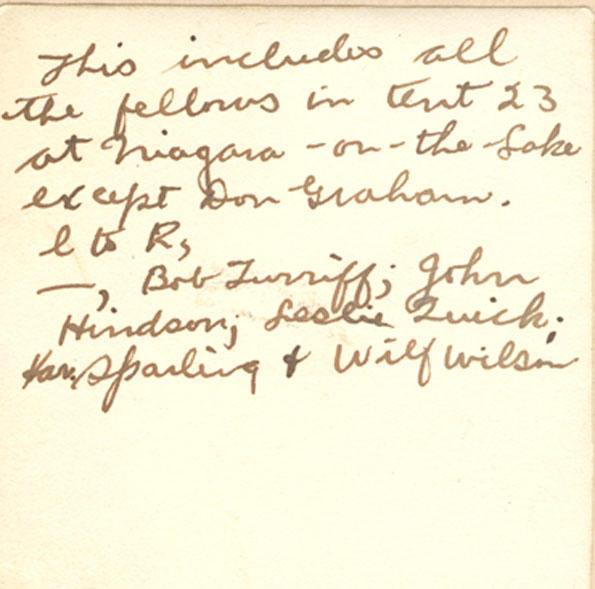 This includes all
the fellows in tent 23
at Niagara-on-the-Lake
except Don Graham.
L to R,
—, Bob Turriff; John
Hindson; Leslie Quick;
Sparling & Wilf Wilson